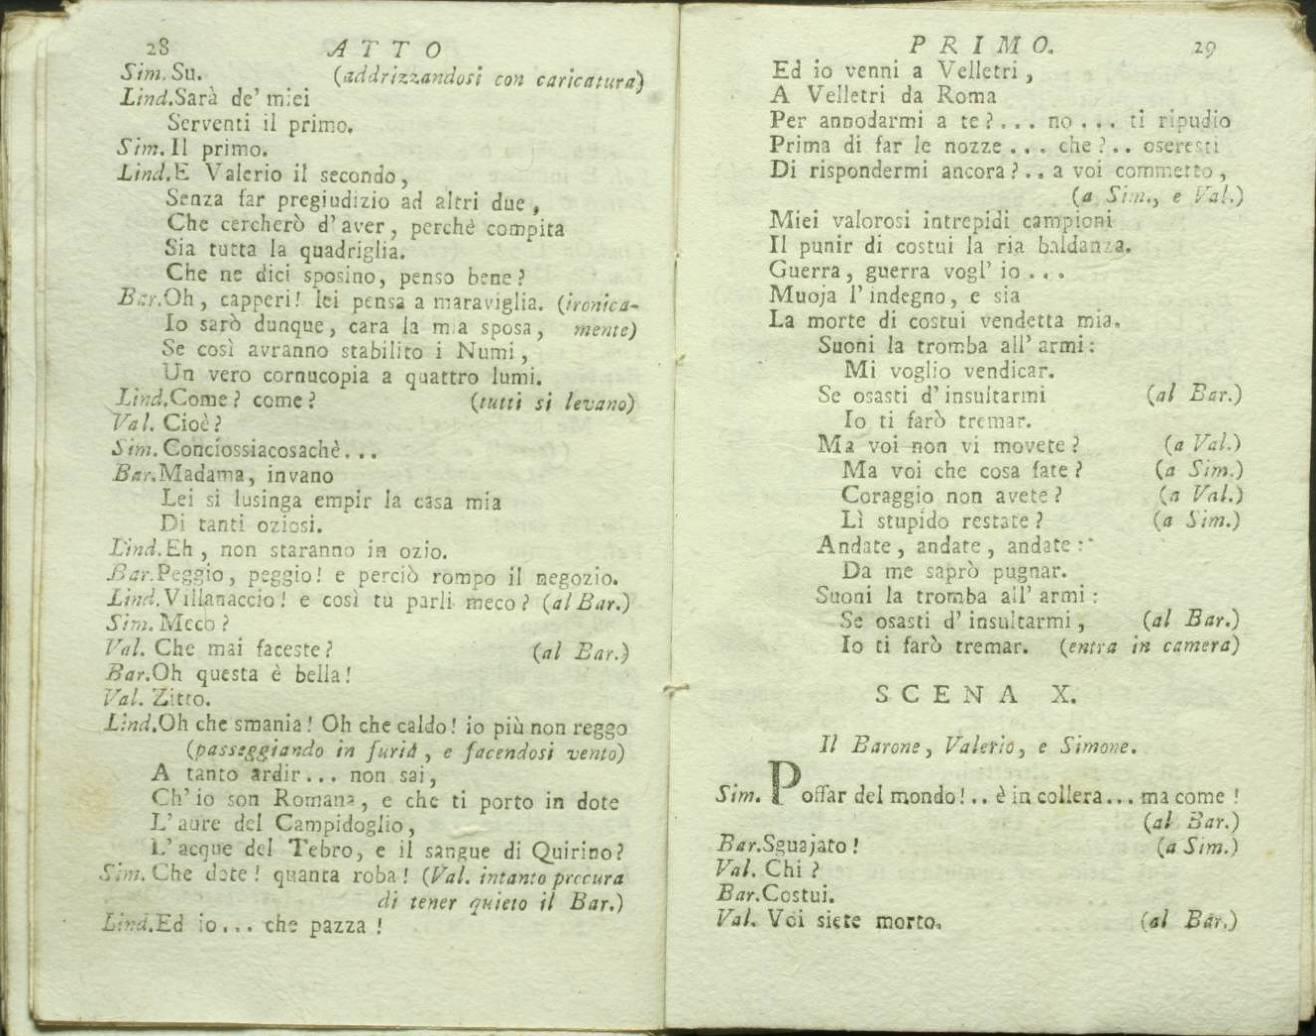 28 ATTO
Sim. Su. (addrizzandosi con caricatura)
Lind. Sarà de' miei
Serventi il primo.
Sim. Il primo.
Lind. E Valerio il secondo,
Senza far pregiudizio ad altri due,
Che cercherò d'aver, perchè compita
Sia tutta la quadriglia.
Che ne dici sposino, penso bene?
Bar. Oh, capperi! lei pensa a maraviglia. (ironica-
Io sarò dunque, cara la mia sposa, mente)
Se così avranno stabilito i Numi,
Un vero cornucopia a quattro lumi.
Lind. Come? come? (tutti si levano)
Val. Cioè?
Sim. Conciossiacosachè...
Bar. Madama, invano
Lei si lusinga empir la casa mia
Di tanti oziosi.
Lind. Eh, non staranno in ozio.
Bar. Peggio, peggio! e perciò rompo il negozio.
Lind. Villanaccio! e così tu parli meco? (al Bar.)
Sim. Meco?
Val. Che mai faceste? (al Bar.)
Bar. Oh questa è bella!
Val. Zitto.
Lind. Oh che smania! Oh che caldo! io più non reggo
(passeggiando in furia, e facendosi vento)
A tanto ardir... non sai,
Ch'io son Romana, e che ti porto in dote
L'aure del Campidoglio,
L'acque del Tebro, e il sangue di Quirino?
Sim. Che dote! quanta roba! (Val. intanto proccura
di tener quieto il Bar.)
Lind. Ed io... che pazza!
PRIMO. 29
Ed io venni a Velletri,
A Velletri da Roma
Per annodarmi a te?... no... ti ripudio
Prima di far le nozze... che?.. oseresti
Di rispondermi ancora?.. a voi commetto,
(a Sim., e Val.)
Miei valorosi intrepidi campioni
Il punir di costui la ria baldanza.
Guerra, guerra vogl' io...
Muoja l'indegno, e sia
La morte di costui vendetta mia.
Suoni la tromba all' armi:
Mi voglio vendicar.
Se osasti d'insultarmi (al Bar.)
Io ti farò tremar.
Ma voi non vi movete? (a Val.)
Ma voi che cosa fate? (a Sim.)
Coraggio non avete? (a Val.)
Lì stupido restate? (a Sim.)
Andate, andate, andate:
Da me saprò pugnar.
Suoni la tromba all' armi:
Se osasti d'insultarmi, (al Bar.)
Io ti farò tremar. (entra in camera)
SCENA X.
Il Barone, Valerio, e Simone.
Sim. Poffar del mondo!.. è in collera... ma come!
(al Bar.)
Bar. Sguajato! (a Sim.)
Val. Chi?
Bar. Costui.
Val. Voi siete morto. (al Bar.)